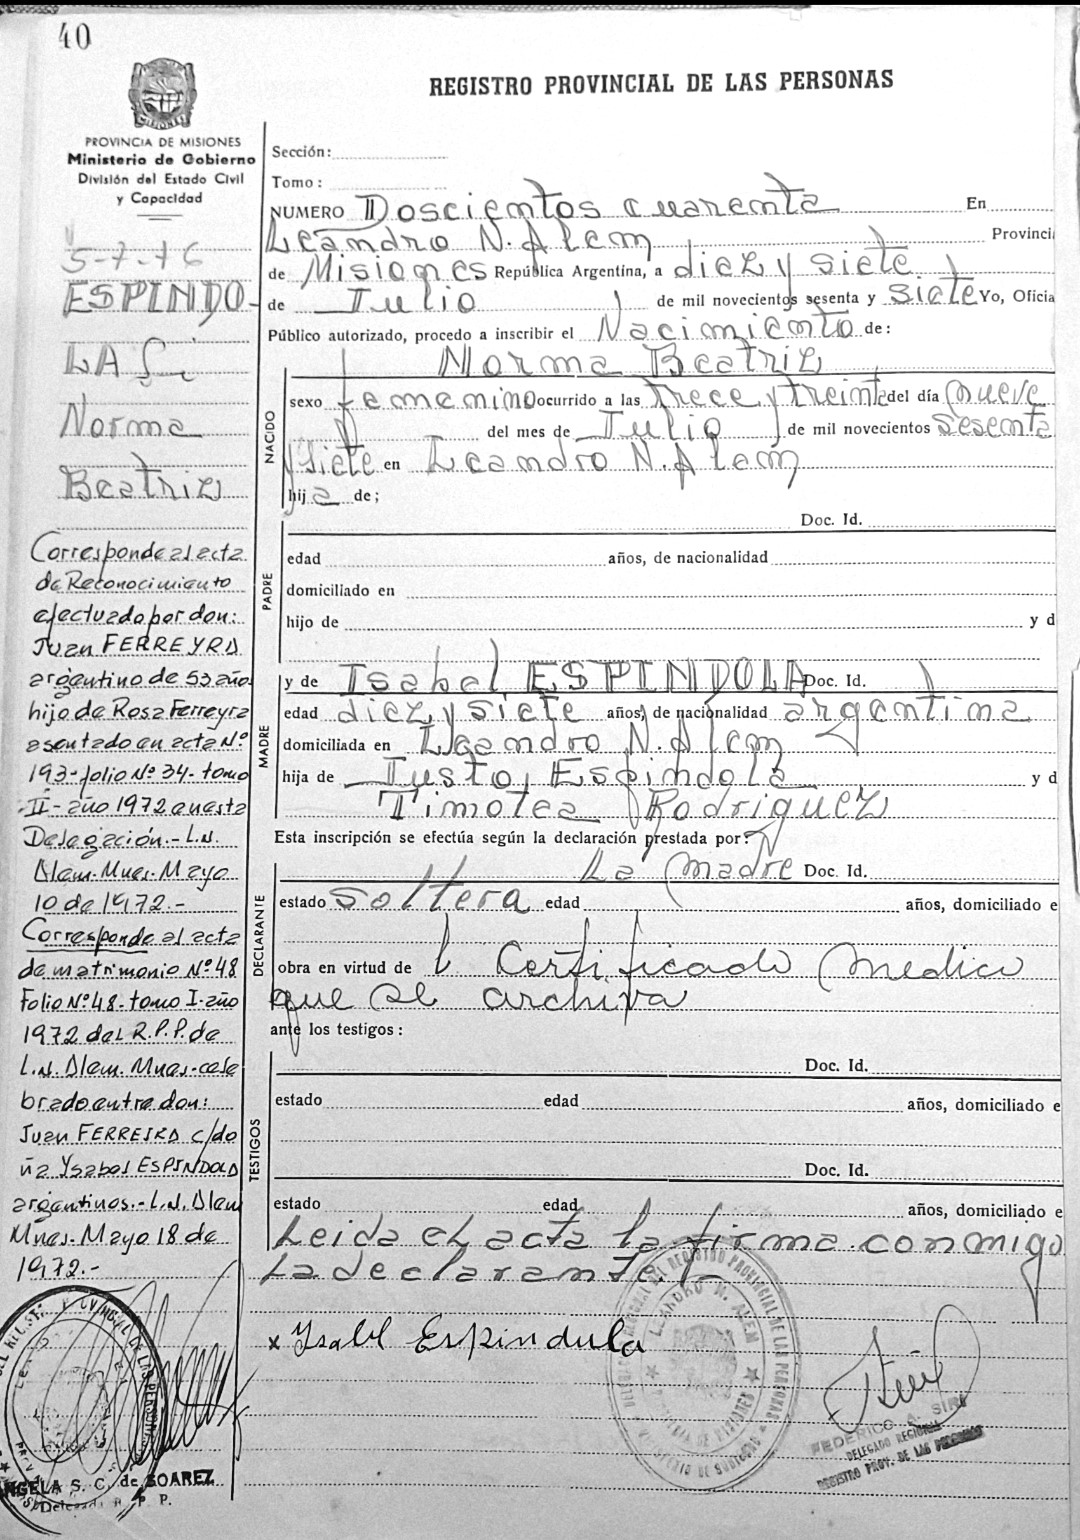 40
REGISTRO PROVINCIAL DE LAS PERSONAS
PROVINCIA DE MISIONES
Ministerio de Gobierno
División del Estado Civil
y Capacidad
5-7-76
ESPINDO-
LA
Norma
Beatriz
Corresponde al acta
de Reconocimiento
efectuado por don:
Juan FERREYRA
argentino de 53 año
hijo de Rosa Ferreyra
asentado en acta Nº
193-folio Nº 34-tomo
II-año 1972 en esta
Delegación.-L.N.
Alem. Mnes. Mayo
10 de 1972.-
Corresponde al acta
de matrimonio Nº 48
Folio Nº 48-tomo I-año
1972 del R.P.P. de
L.N. Alem. Mnes.-cele
brado entre don:
Juan FERREIRA c/do
ña Ysabel ESPINDOLA
argentinos.-L.N. Alem
Mnes. Mayo 18 de
1972.-
Sección:
Tomo:
NUMERO Doscientos cuarenta En
Leandro N. Alem Provinci
de Misiones República Argentina, a diez y siete
de Iulio de mil novecientos sesenta y siete Yo, Oficia
Público autorizado, procedo a inscribir el Nacimiento de:
Norma Beatriz
NACIDO
sexo femenino ocurrido a las trece y treinta del día nueve
del mes de Iulio de mil novecientos sesenta
y siete en Leandro N. Alem
hija de;
PADRE
Doc. Id.
edad años, de nacionalidad
domiciliado en
hijo de y d
MADRE
y de Isabel ESPINDOLA Doc. Id.
edad diez y siete años, de nacionalidad argentina
domiciliada en Leandro N. Alem
hija de Iusto Espindola y d
Timotea Rodriguez
Esta inscripción se efectúa según la declaración prestada por:
DECLARANTE
La madre Doc. Id.
estado soltera edad años, domiciliado e
obra en virtud de l Certificado Medico
que se archiva
ante los testigos:
TESTIGOS
Doc. Id.
estado edad años, domiciliado e
Doc. Id.
estado edad años, domiciliado e
Leida el acta la firma conmigo
La declarante
x Ysabl Espindula
LEANDRO N. ALEM
PROVINCIA DE MISIONES
FEDERICO A. SIRI
DELEGADO REGIONAL
REGISTRO PROV. DE LAS PERSONAS
NGELA S. C. de SOAREZ
Delegada R. P. P.